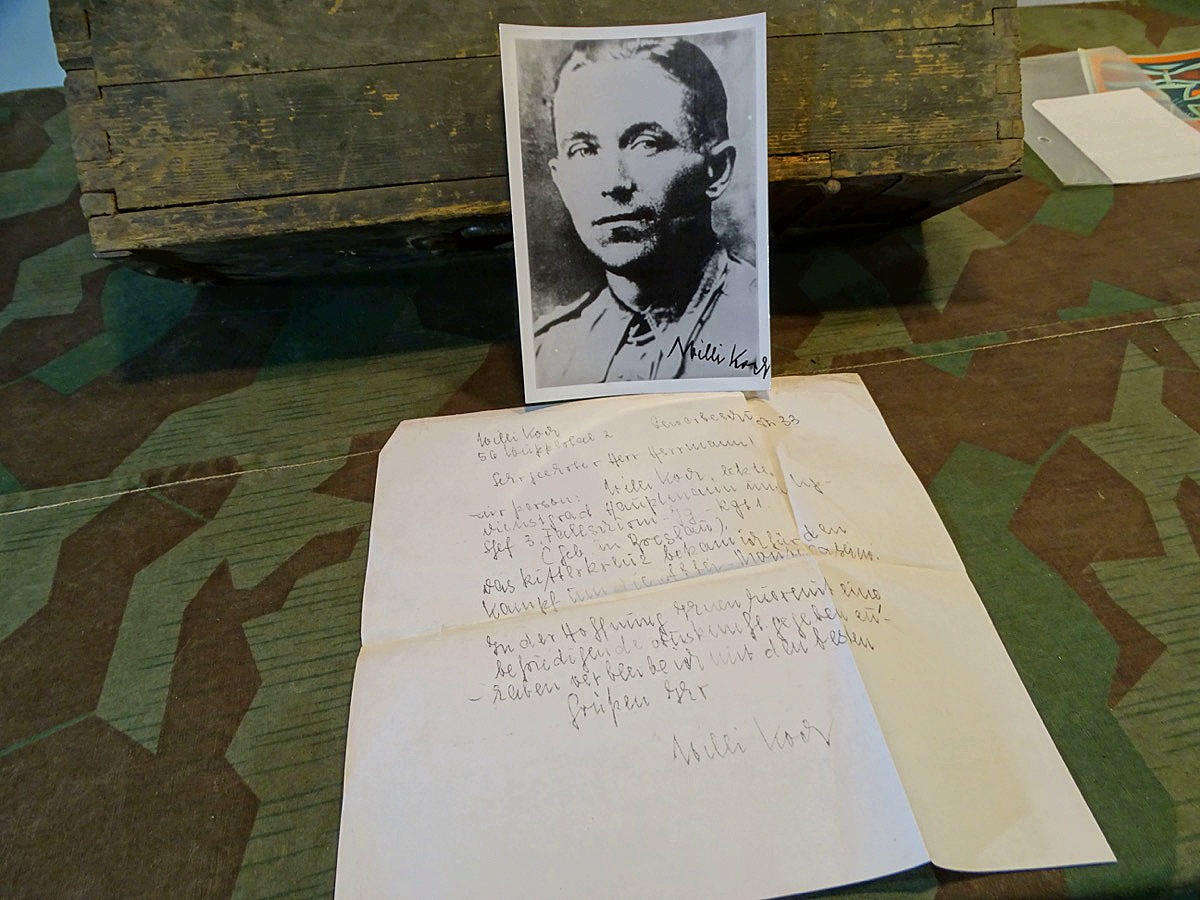 Willi Koch
Willi Koch
56 Wuppertal 2
Sehr geehrter Herr Herrmann!
zur person: Willi Koch, letzter
Dienstgrad Hauptmann und
Chef 3. Fallschirm-Jg-Rgt 1.
(geb. in Breslau),
Das Ritterkreuz bekam ich für den
Kampf um die Abtei-Monte Cassino.
In der Hoffnung Ihnen hiermit eine
befriedigende Auskunft gegeben zu
haben verbleibe ich mit den besten
Grüßen Ihr
Willi Koch